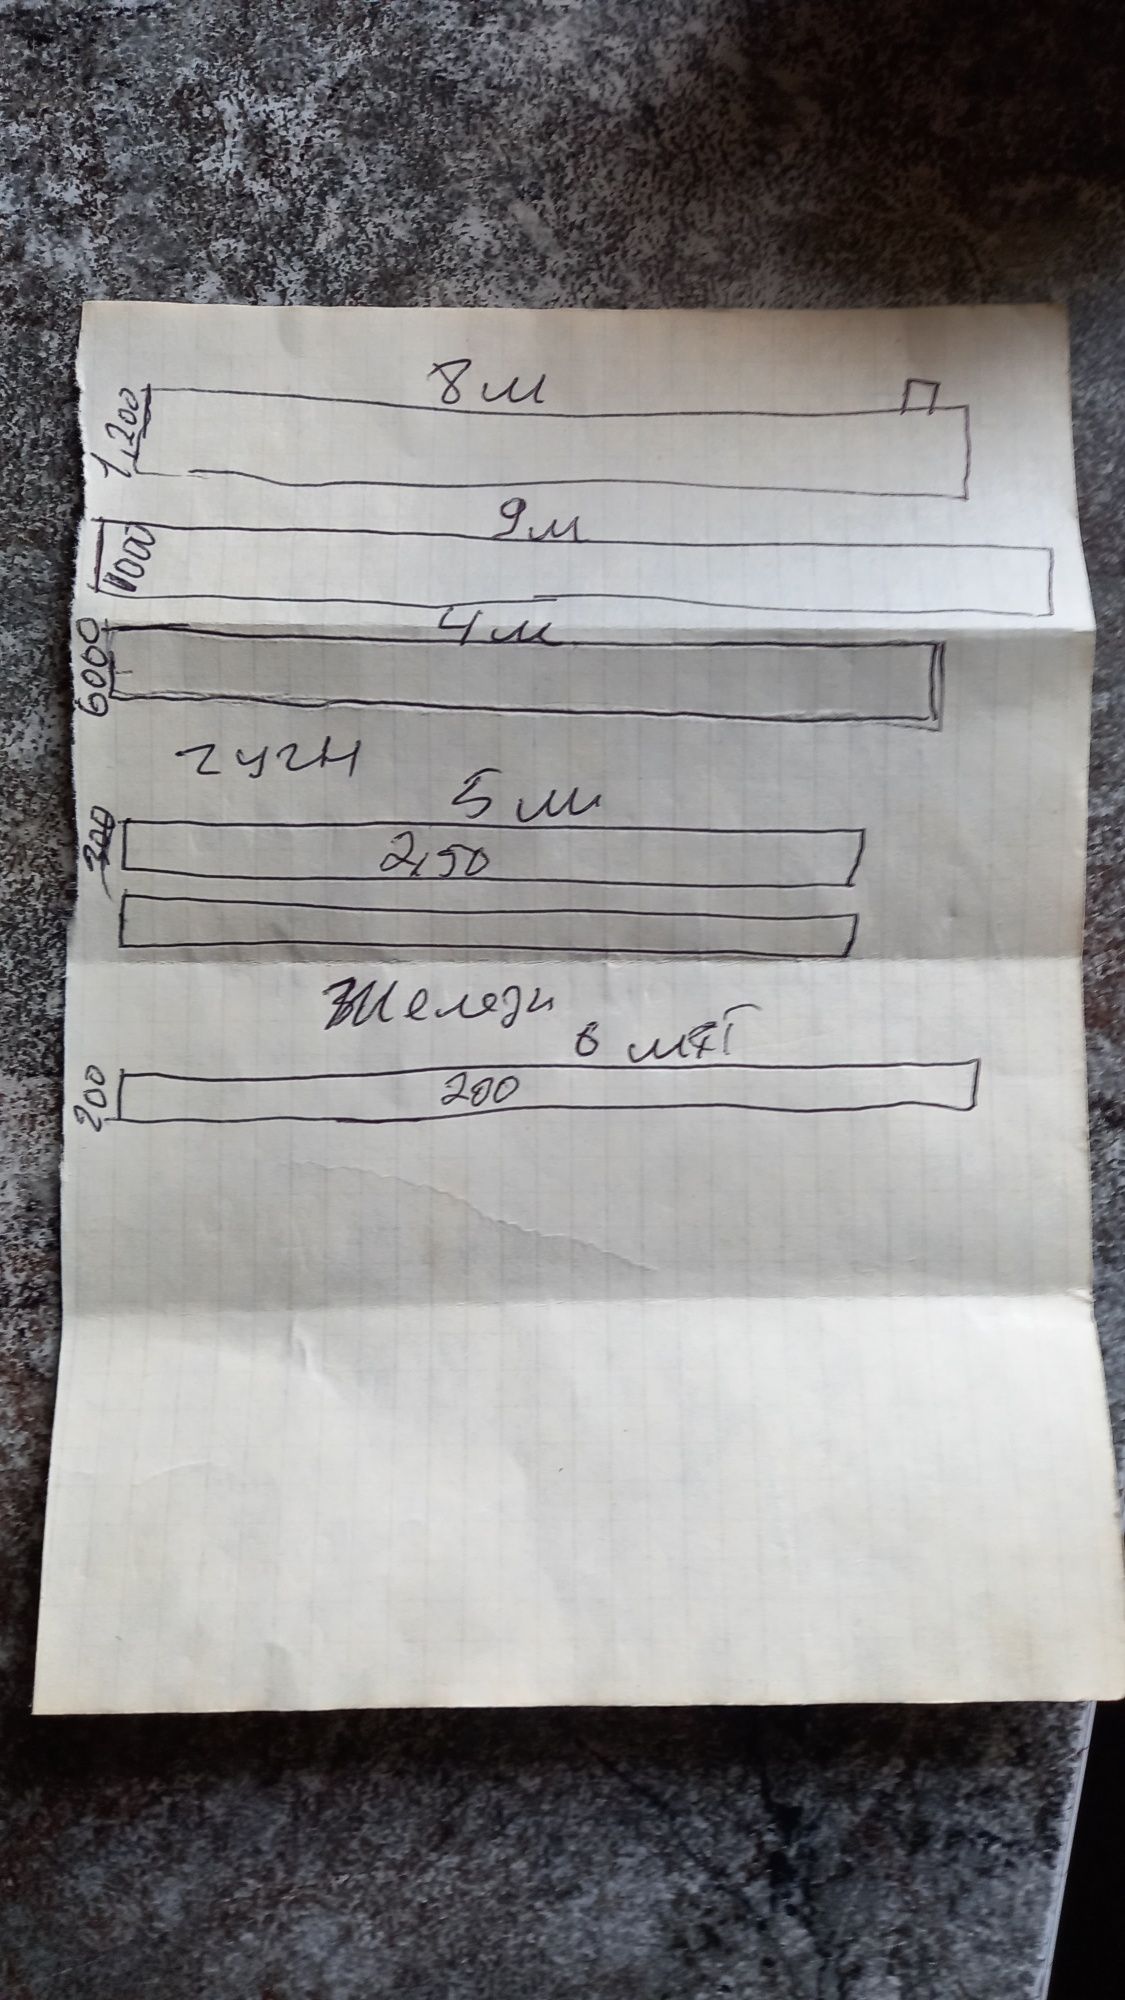 8м
1,200
9м
1000
4м
6000
чугн
5м
300
2,50
Железн
6 м
200
200